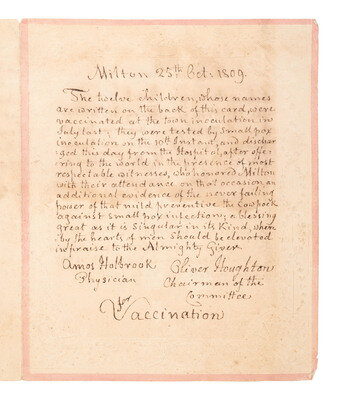 Milton 25th Oct. 1809.
The twelve children, whose names
are written on the back of this card, were
vaccinated at the town inoculation in
July last: they were tested by small pox
inoculation on the 10th Instant, and dischar
ged this day from the Hospital, after offe
ring to the world in the presence of most
respectable witnesses, who honored Milton
with their attendance on that occasion, an
additional evidence of the never failing
power of that mild preventive the Cowpock
against small pox infection; a blessing
great as it is Singular in its Kind, where
by the hearts of men should be elevated
in praise to the Almighty Giver.
Amos Holbrook Oliver Houghton
Physician Chairman of the
Committee
for
Vaccination